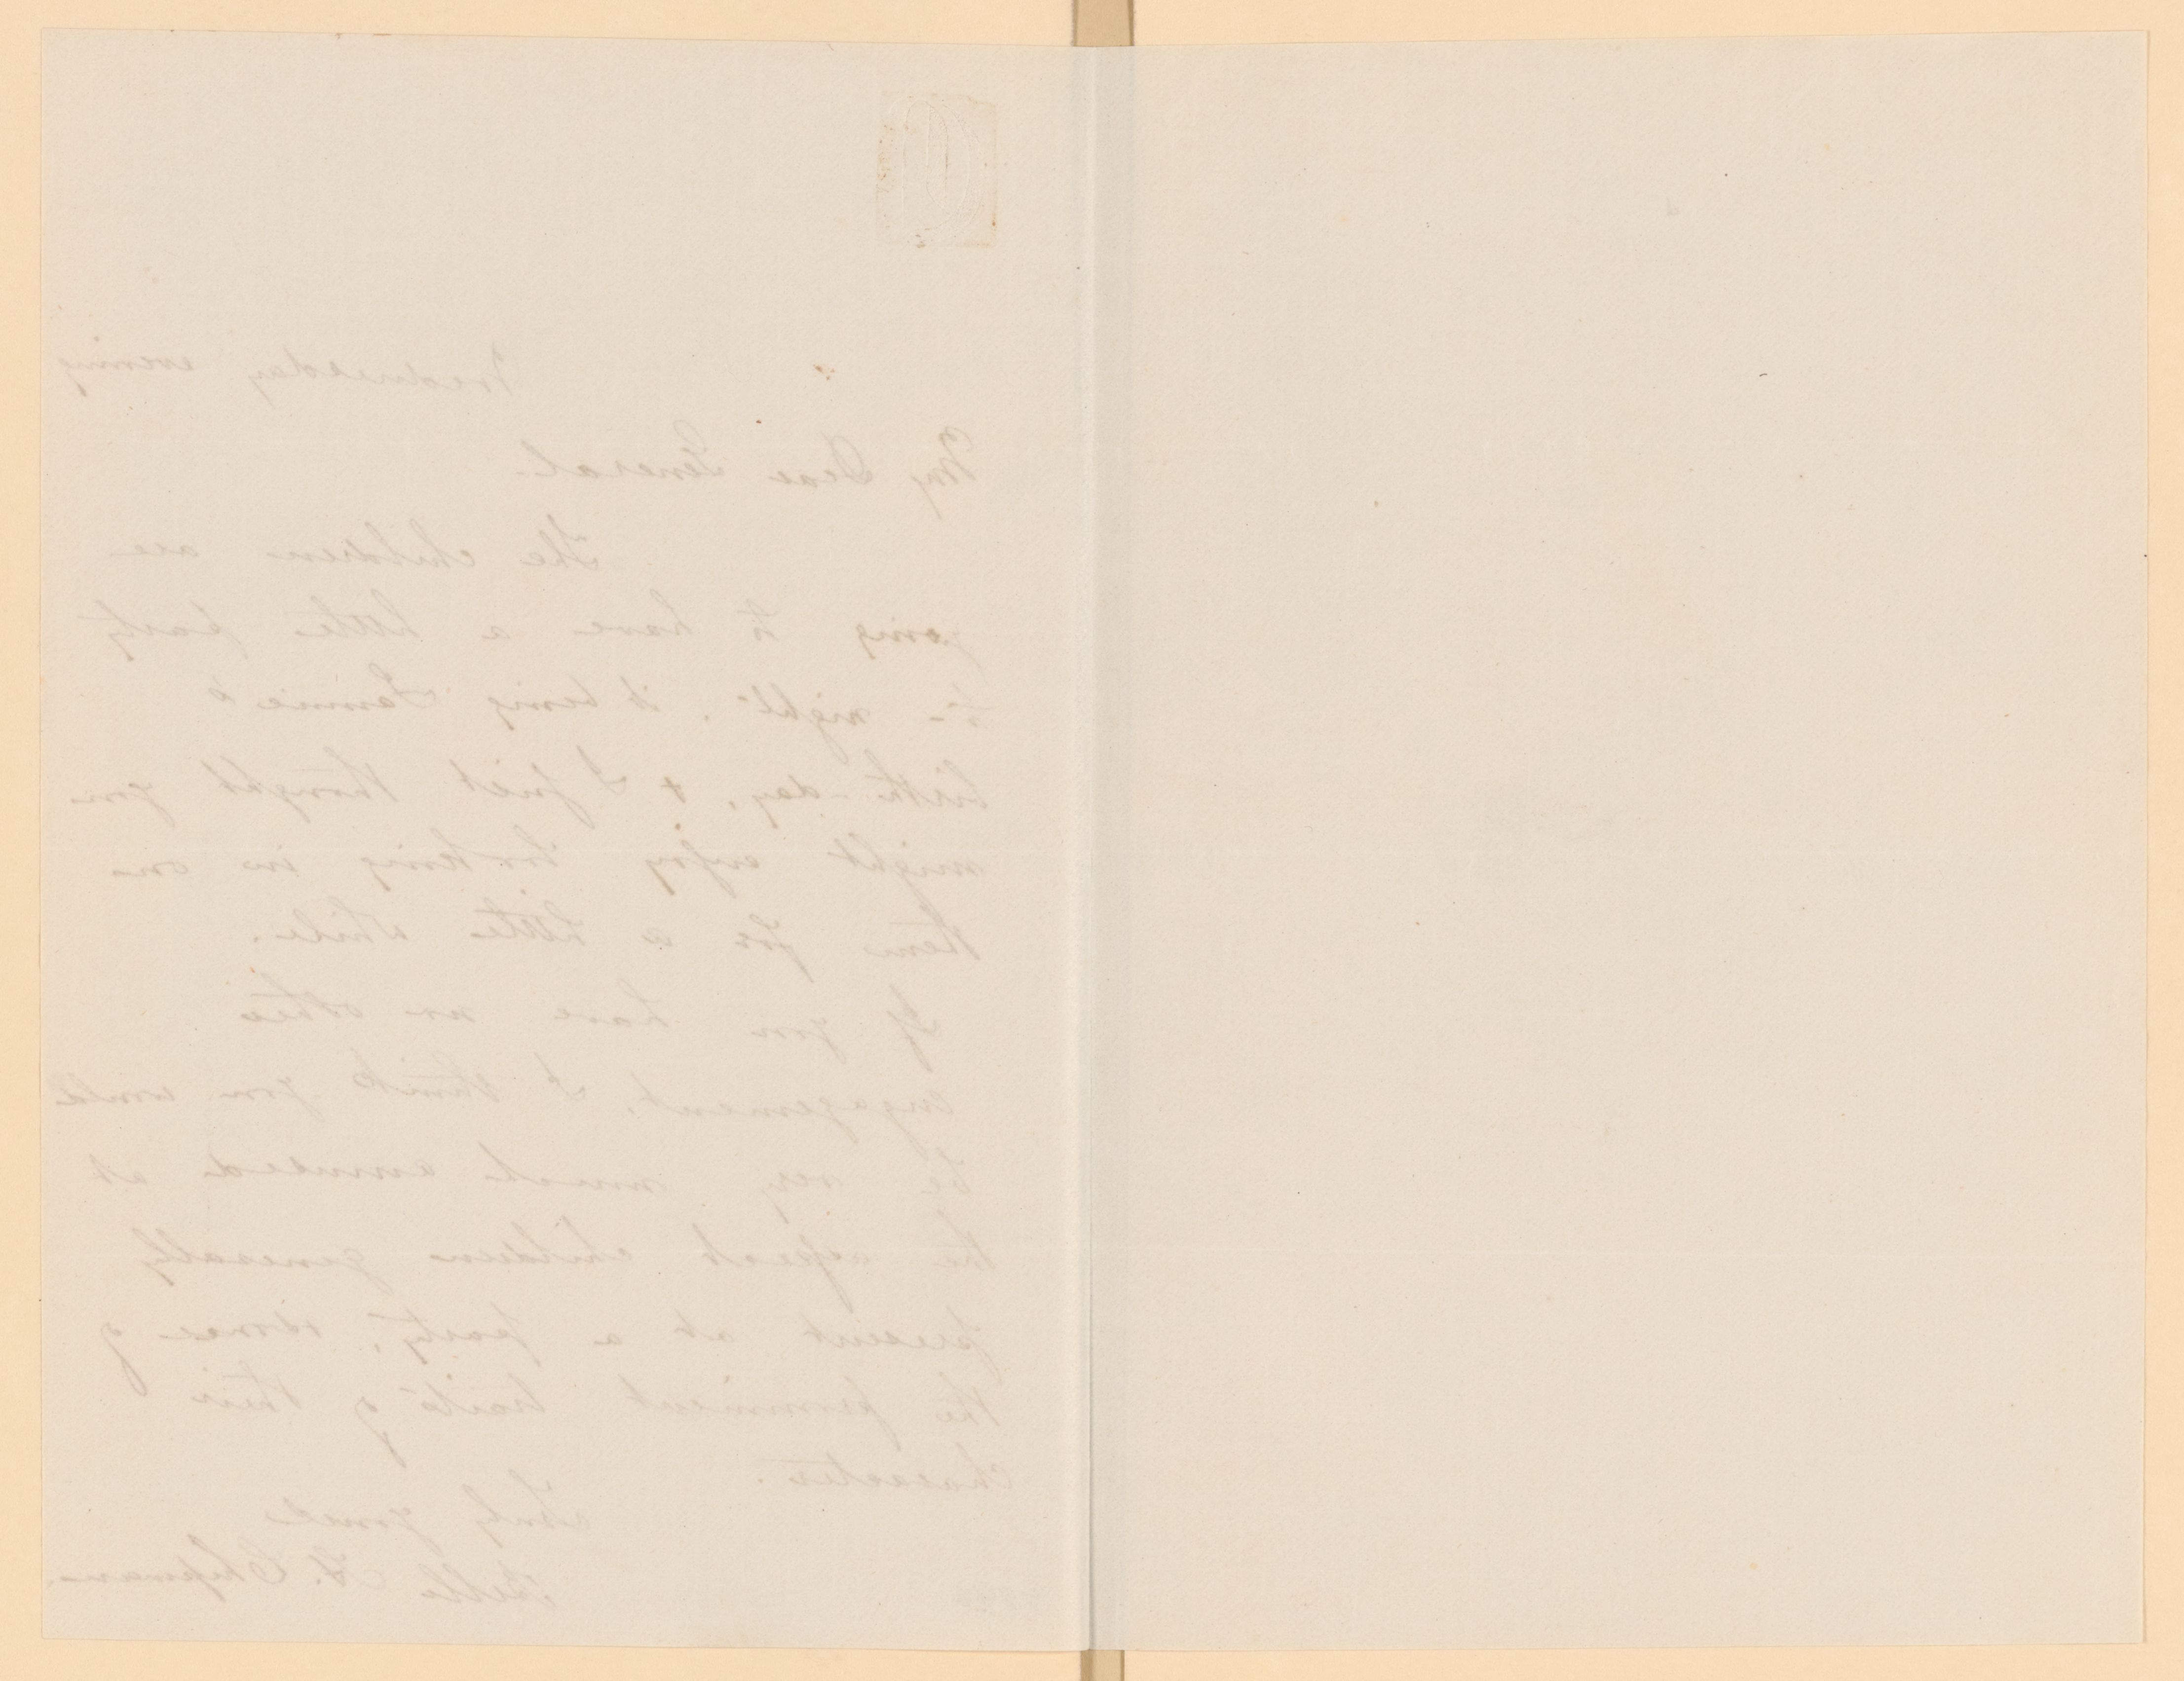 Wednesday evening
My Dear General.
The children are
going to have a little party
to-night, it being Fannie's
birth-day, + I just thought you
might enjoy looking in on
them for a little while.
If you have no other
engagement, I think you would
be very much amused at
the aspect children generally
present at a party, of
the traits of their
character.
Truly yours
Belle F. Chipman.